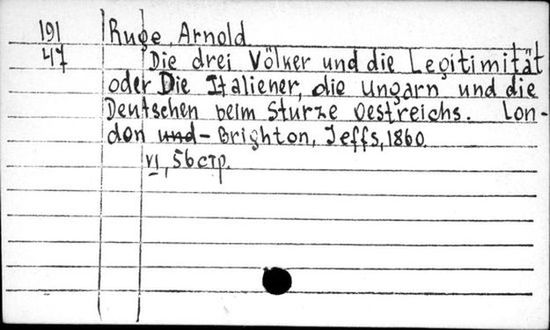 191 Ruge, Arnold
47 Die drei Völker und die Legitimität
oder Die Italiener, die Ungarn und die
Deutschen beim Sturze Oestreichs. Lon-
don und - Brighton, Jeffs, 1860.
VI, 56 стр.